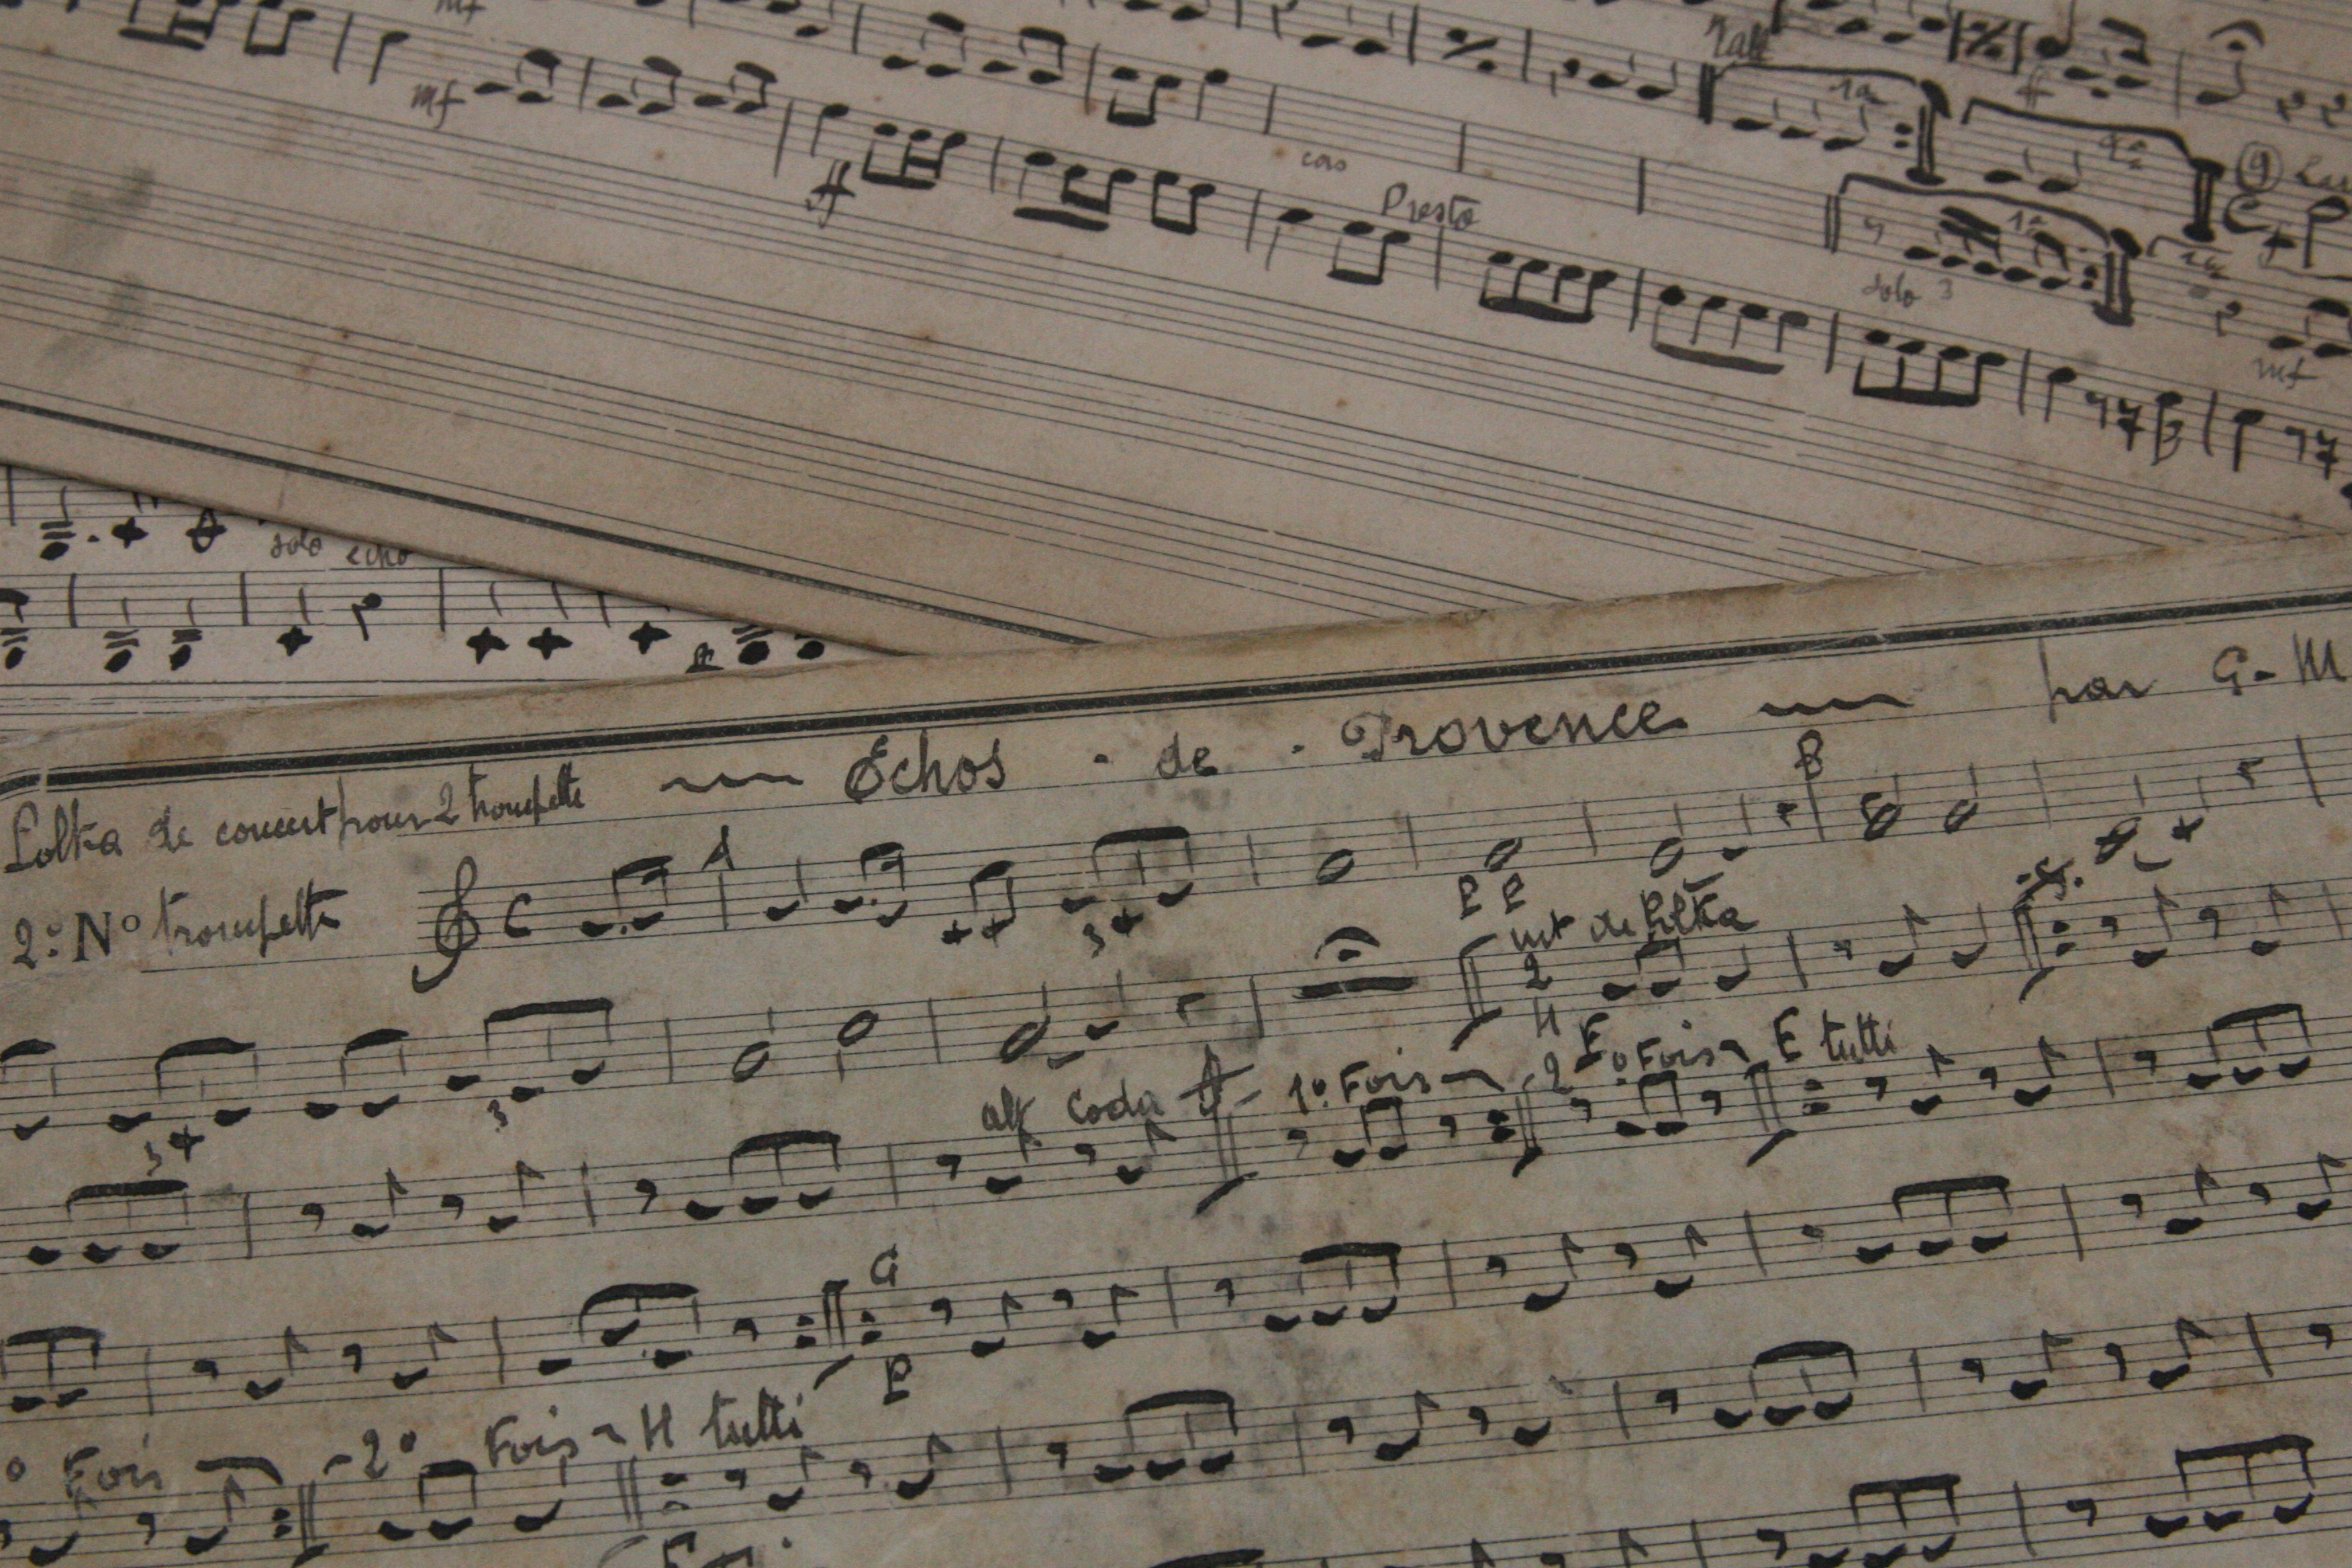 mf
Rall
1a
2a
ff
mf
ff
cors
Presto
9
1a
solo 3
1a
mf
solo echo
Polka de concert pour 2 trompette
Echos · de · Provence
par G-M
2º Nº trompette
C
A
B
3
P P
mt de Polka
2
3
3
alf Coda
1º Fois
2º Fois
E tutti
G
P
º Fois
2º Fois
H tutti